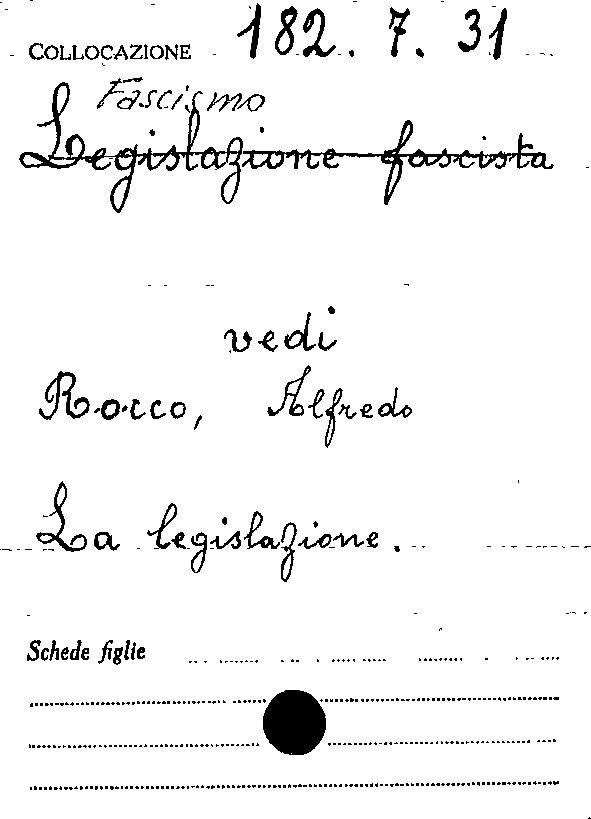 COLLOCAZIONE 182. 7. 31
Fascismo
Legislazione fascista
vedi
Rocco, Alfredo
La legislazione.
Schede figlie